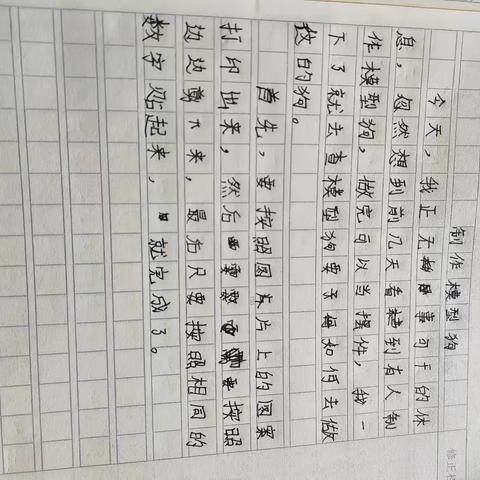 制作模型狗
今天，我正无事可干的休
息，忽然想到前几天看到有人制
作模型狗，做完可以当摆件，我一
下了就去查模型狗要如何去做
的狗。
首先，要按照图片上的图案
打印出来，然后需要按照
边边剪下来，最后只要按照相同的
数字贴起来，就完成了。
修正